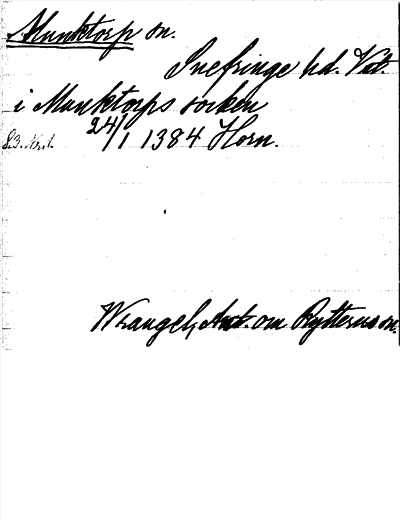 Munktorp sn.
Snefringe hd. Vst.
i Munktorps socken
24/1 1384 Horn.
Wrangel, Ant. om Rytterns sn.